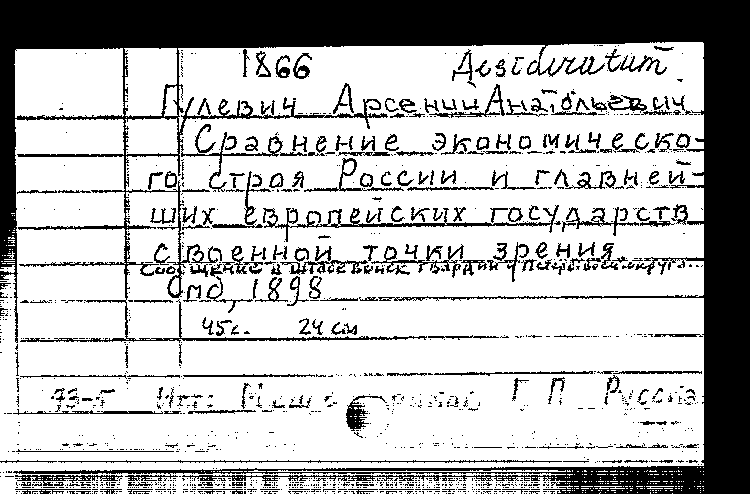 1866 Desideratum
Гулевич Арсений Анатольевич
Сравнение экономическо-
го строя России и главней-
ших европейских государств
с военной точки зрения.
Сообщение в штабе войск гвардии и Петерб. воен. округа...
Спб, 1898
45с. 24 см
93-5 Г П Русска